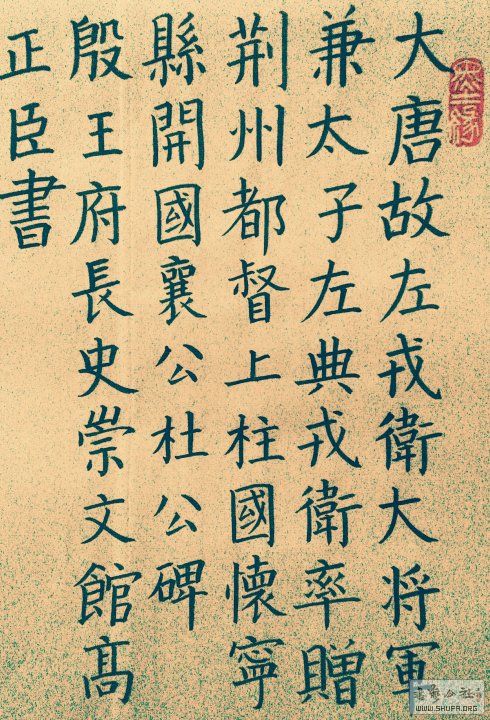 大唐故左戎衛大将軍
兼太子左典戎衛率贈
荆州都督上柱國懷寧
縣開國襄公杜公碑
殷王府長史崇文館髙
正臣書
WWW.SHUFA.ORG